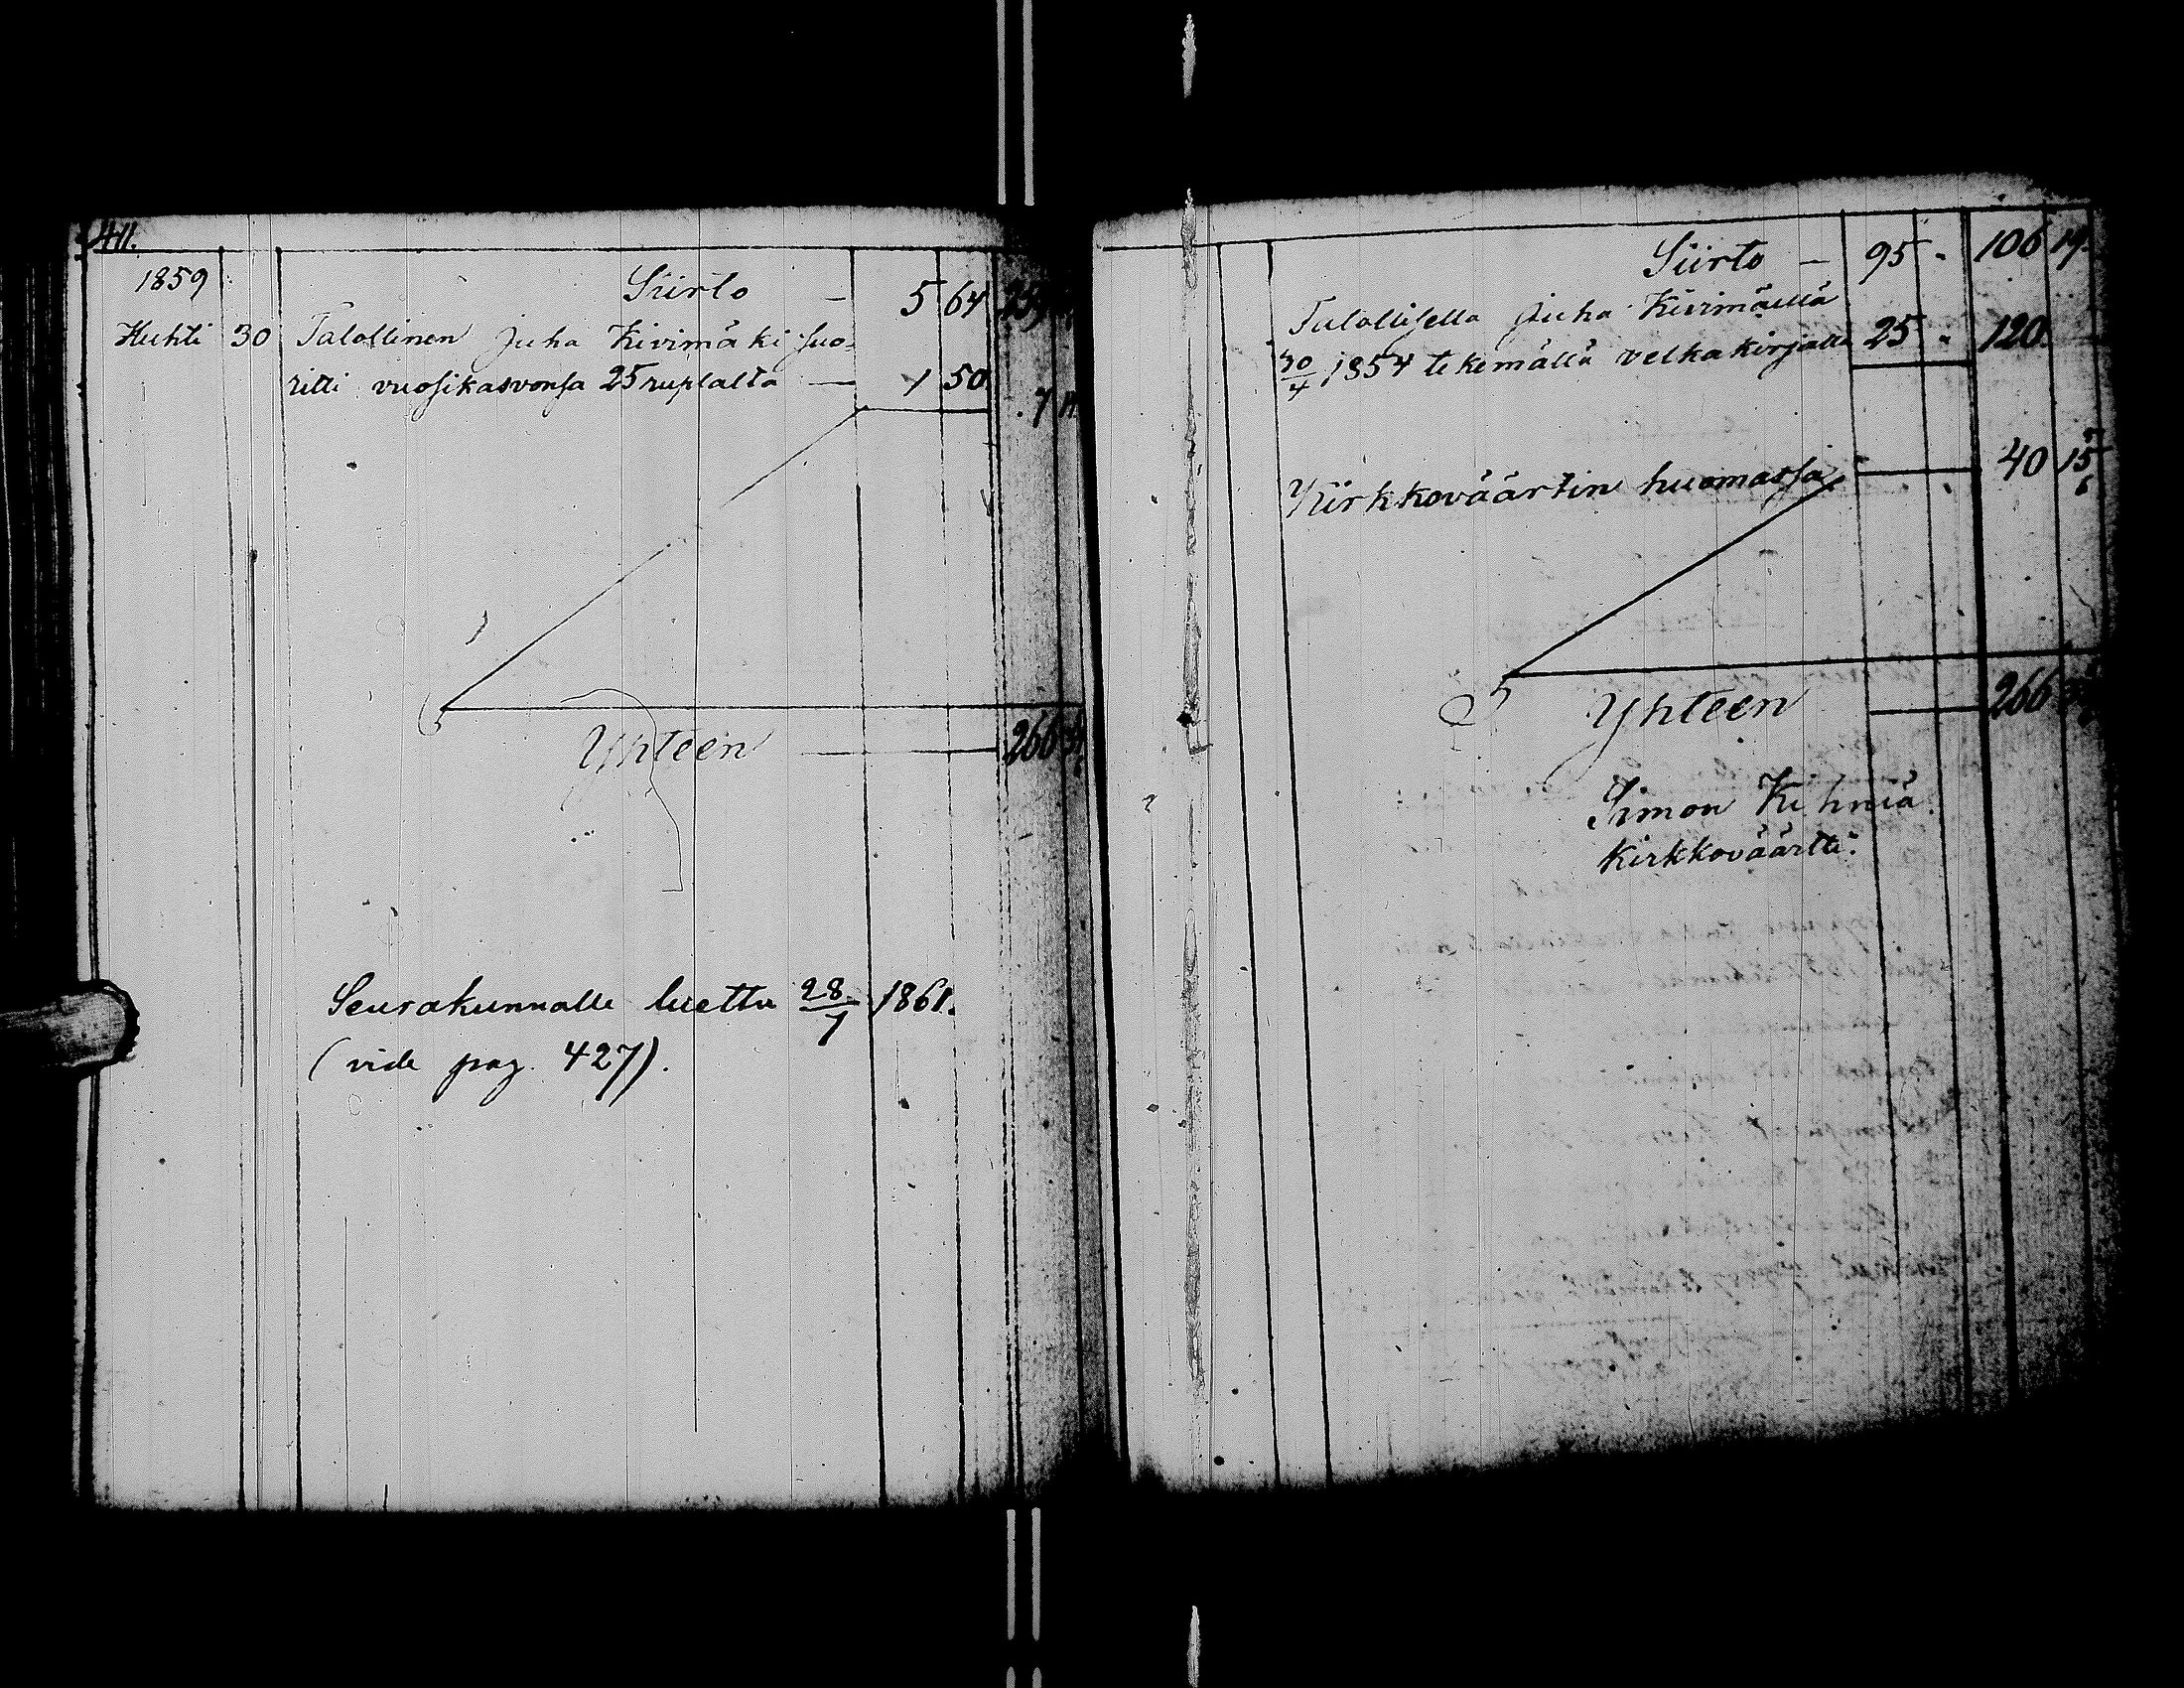 411.
1859 Siirto — 5 64 259
Huhti 30 Talollinen Juha Kivimäki suo-
ritti vuosikasvonsa 25 ruplalta — 1 50 7 14
Yhteen 266
Seurakunnalle luettu 28/1 1861.
(vide pag. 427).
Siirto — 95 " 106 17.
Talollisella Juha Kivimäellä
30/4 1854 tekemällä velkakirjalla 25 " 120
Kirkkoväärtin huomassa 40 15
Yhteen 266
Simon Kihniä
Kirkkoväärtti.